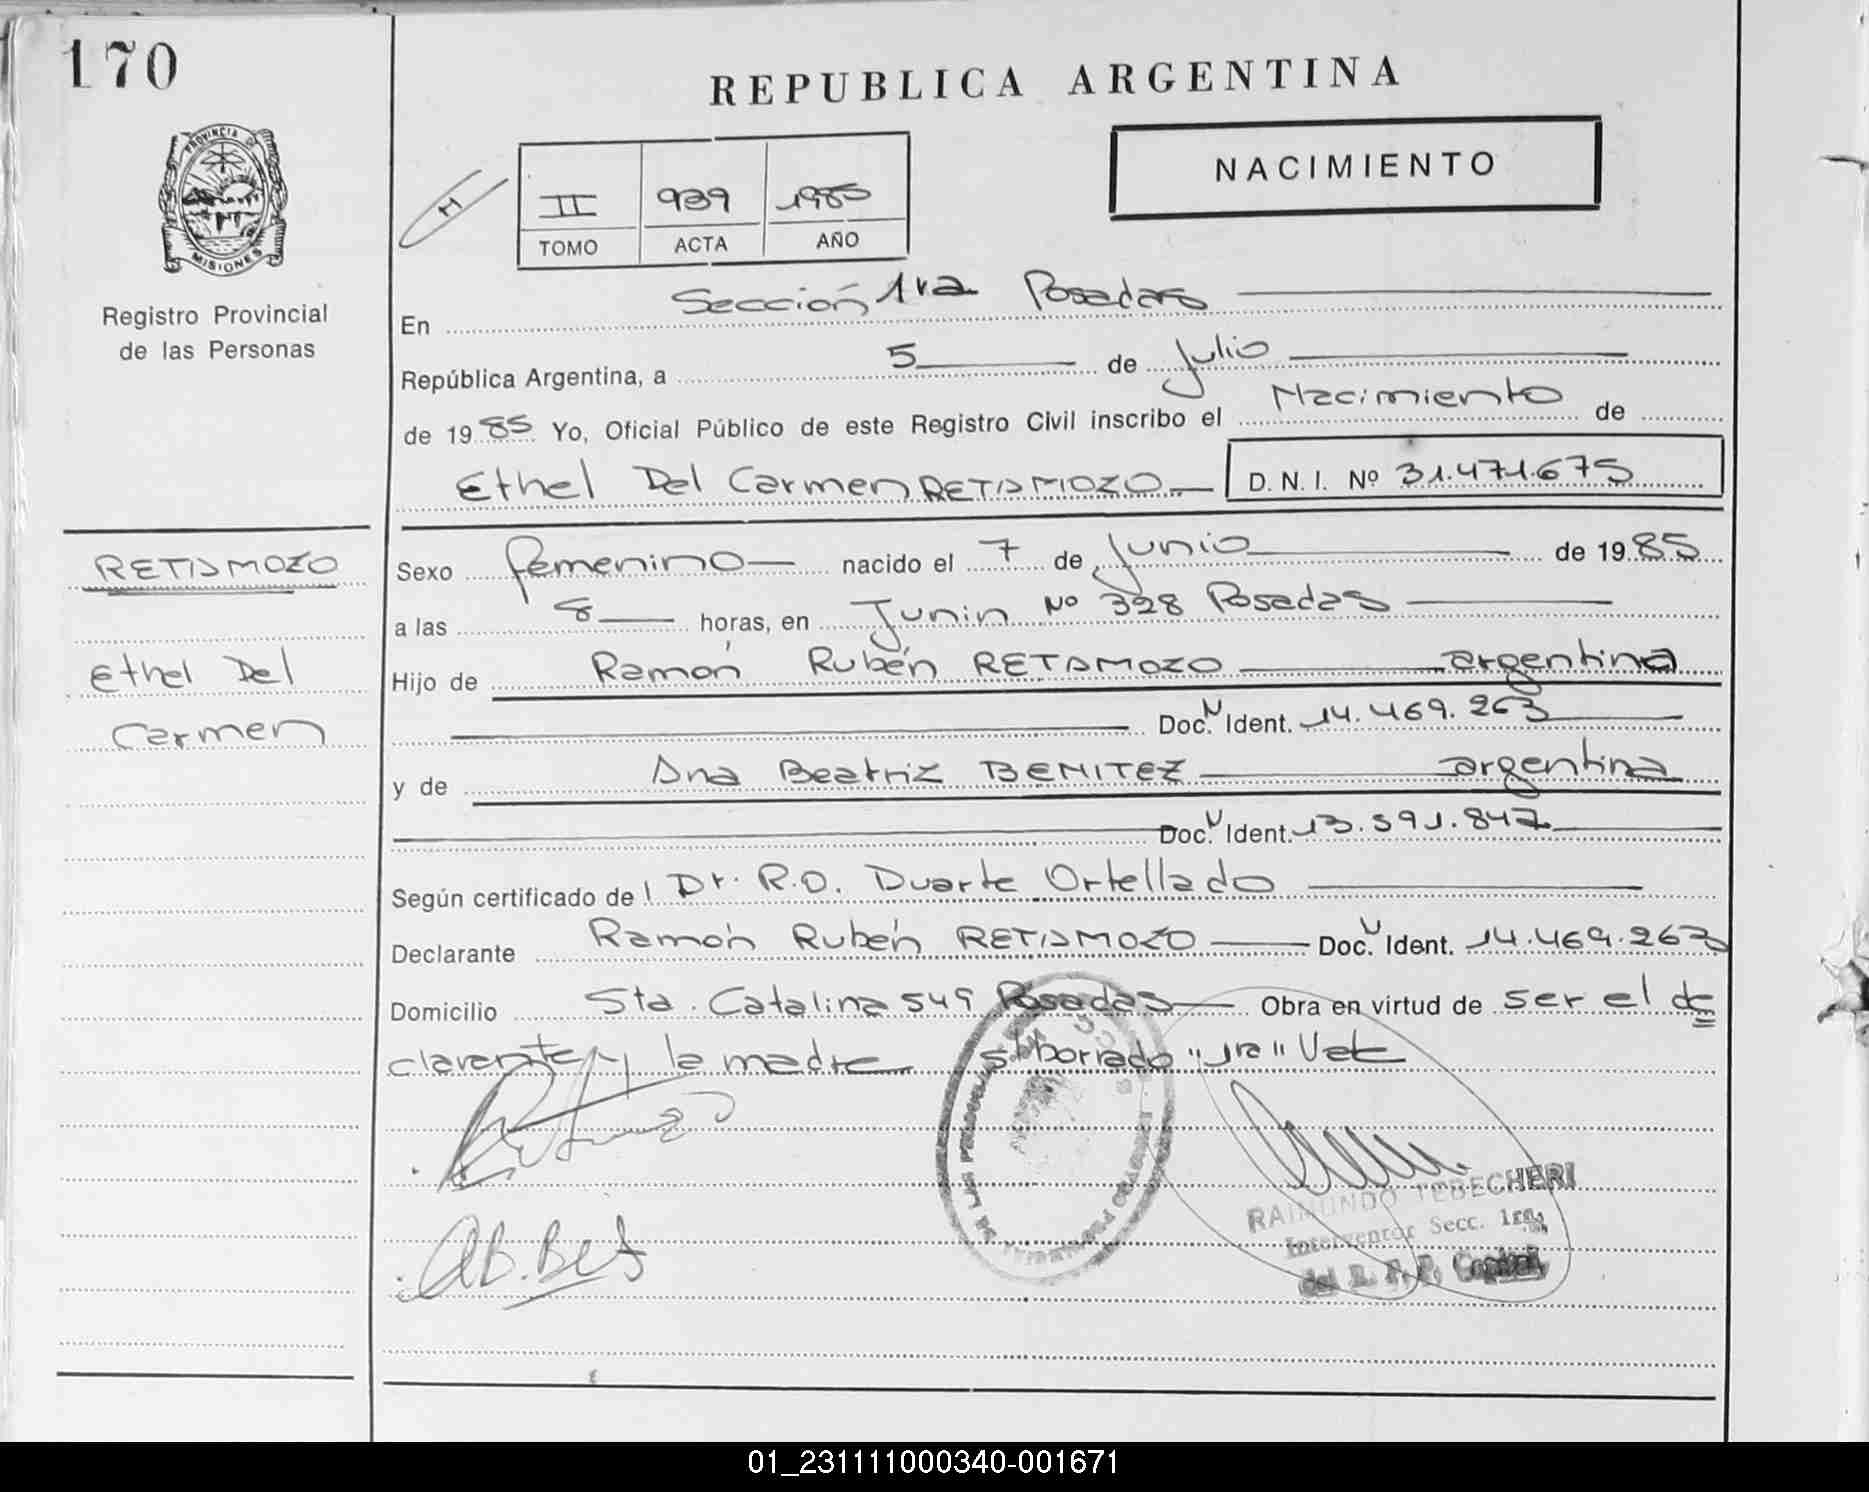 170
REPUBLICA ARGENTINA
NACIMIENTO
PROVINCIA DE
MISIONES
Registro Provincial
de las Personas
II 939 1985
TOMO ACTA AÑO
En Sección 1ra Posadas
República Argentina, a 5 de Julio
de 1985 Yo, Oficial Público de este Registro Civil inscribo el Nacimiento de
Ethel Del Carmen RETAMOZO D. N. I. Nº 31.471.675
RETAMOZO
Ethel Del
Carmen
Sexo femenino nacido el 7 de Junio de 1985
a las 8 horas, en Junin Nº 328 Posadas
Hijo de Ramón Rubén RETAMOZO argentina
Doc. N Ident. 14.469.263
y de Ana Beatriz BENITEZ argentina
Doc. N Ident. 13.591.847
Según certificado de l Dr. R.O. Duarte Ortellado
Declarante Ramón Rubén RETAMOZO Doc. N Ident. 14.469.263
Domicilio Sta. Catalina 549 Posadas Obra en virtud de ser el de
clarante y la madre s/borrado "1ra" Vale
RAIMUNDO TEBECHERI
Interventor Secc. 1ra.
del R. P. P. Capital
01_231111000340-001671